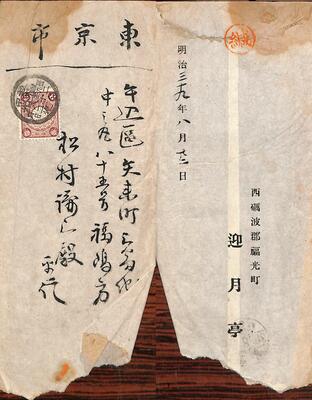 東京市
牛込區矢来町三番地
中ノ九八十五号福嶋方
松村謙三殿
平信
明治三九年八月十二日
西礪波郡福光町
迎月亭